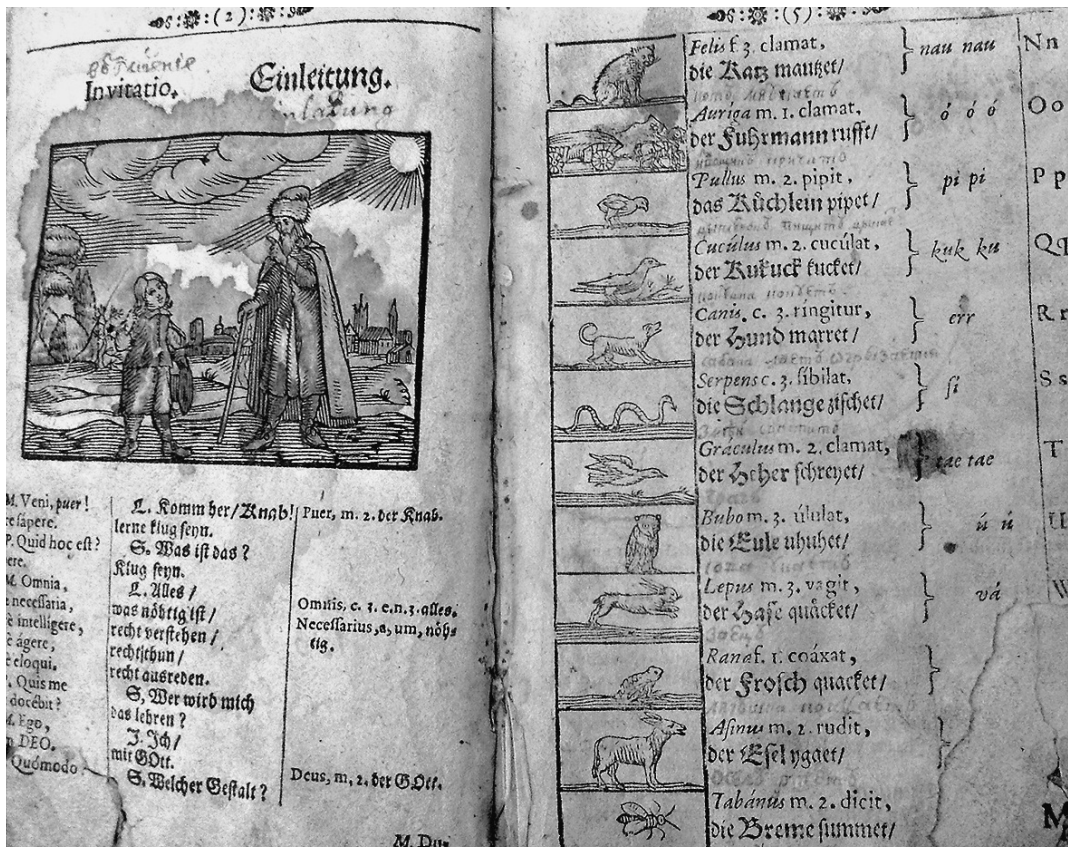 (2)
Invitatio. Einleitung.
M. Veni, puer!
sápere.
P. Quid hoc est?
M. Omnia,
necessaria,
intelligere,
ágere,
eloqui.
Quis me
docébit?
M. Ego,
DEO.
Quómodo
L. Komm her/Knab!
lerne klug seyn.
S. Was ist das?
Klug seyn.
L. Alles/
was nöhtig ist/
recht verstehen/
recht thun/
recht ausreden.
S, Wer wird mich
das lehren?
J. Ich/
mit GOtt.
S. Welcher Gestalt?
Puer, m. 2. der Knab.
Omnis, c. 3. e. n. 3. alles.
Necessarius, a, um, nöh-
tig.
Deus, m, 2. der GOtt.
M. Du-
(5)
Felis f. 3. clamat, nau nau Nn
die Katz mautzet/
Auriga m. 1. clamat, ó ó ó Oo
der Fuhrmann rufft/
Pullus m. 2. pipit, pi pi Pp
das Küchlein pipet/
Cucúlus m. 2. cucúlat, kuk ku
der Kukuck kucket/
Canis. c. 3. ringitur, err Rr
der Hund marret/
Serpens c. 3. sibilat, si Ss
die Schlange zischet/
Gráculus m. 2. clamat, tae tae T
der Heher schreyet/
Bubo m. 3. úlulat, ú ú
die Eule uhuhet/
Lepus m. 3. vagit, vá W
der Hase quäcket/
Rana f. 1. coáxat,
der Frosch quacket/
Asinus m. 2. rudit,
der Esel ygaet/
Tabánus m. 2. dicit,
die Breme summet/